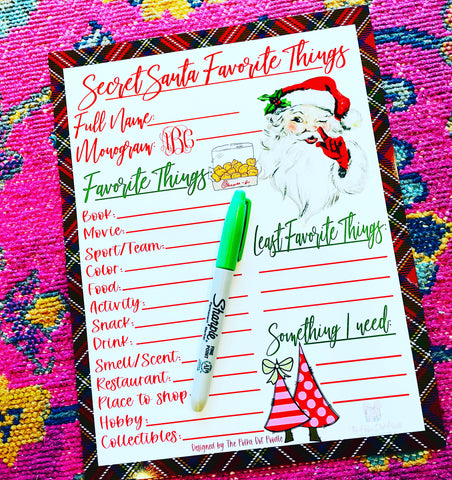 Secret Santa Favorite Things
Full Name:
Monogram:
Favorite Things
Book:
Movie:
Sport/Team:
Color:
Food:
Activity:
Snack:
Drink:
Smell/Scent:
Restaurant:
Place to shop:
Hobby:
Collectibles:
Least Favorite Things:
Something I need:
Sharpie
Designed by The Polka Dot Poodle